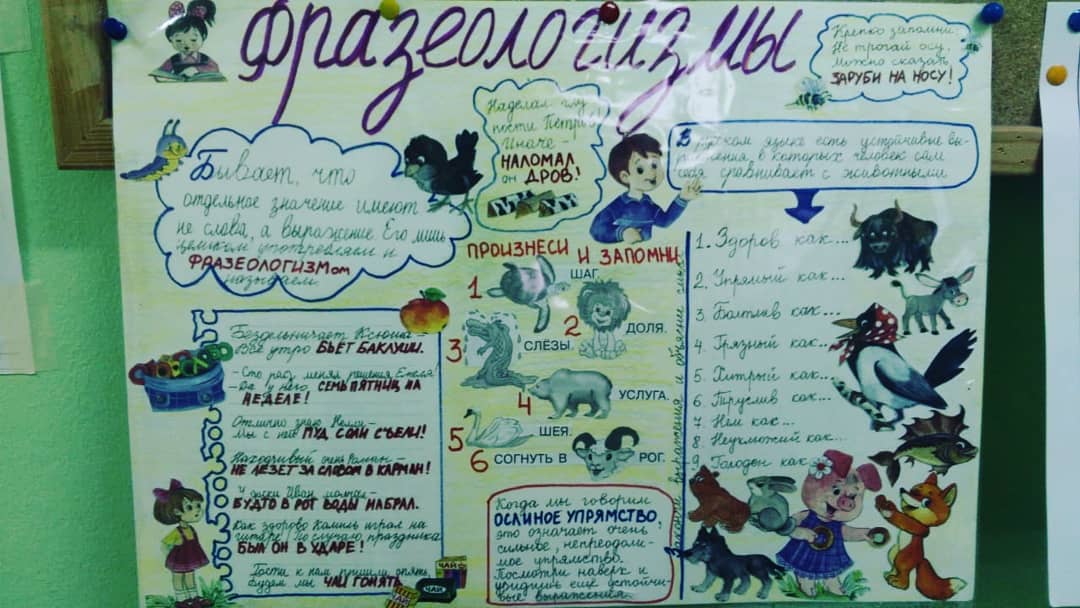 Фразеологизмы
Крепко запомни:
Не трогай осу,
Можно сказать
ЗАРУБИ НА НОСУ!
Наделал глу
пости Петров
Иначе -
НАЛОМАЛ
он ДРОВ!
Бывает, что
отдельное значение имеют
не слова, а выражение. Его лишь
целиком употребляем и
ФРАЗЕОЛОГИЗМом
называем.
В русском языке есть устойчивые вы-
ражения, в которых человек сам
себя сравнивает с животными
ПРОИЗНЕСИ И ЗАПОМНИ
1 ШАГ.
2 ДОЛЯ.
3 СЛЁЗЫ.
4 УСЛУГА.
5 ШЕЯ.
6 СОГНУТЬ В РОГ.
Бездельничает Ксюша -
Всё утро БЬЁТ БАКЛУШИ.
- Сто раз менял решения
- Да у него СЕМЬ ПЯТНИЦ НА
НЕДЕЛЕ!
Отлично знаю Нелли -
Мы с ней ПУД СОЛИ СЪЕЛИ!
Находчивый очень Роман -
НЕ ЛЕЗЕТ ЗА СЛОВОМ В КАРМАН!
У доски Иван молчал -
БУДТО В РОТ ВОДЫ НАБРАЛ.
Как здорово Камиль играл на
гитаре! По случаю праздника
БЫЛ ОН В УДАРЕ!
Гости к нам пришли опять,
Будем мы ЧАИ ГОНЯТЬ.
ЧАЙ
ЧАЙ
Когда мы говорим
ОСЛИНОЕ УПРЯМСТВО,
это означает очень
сильное, непреодоли-
мое упрямство.
Посмотри наверх и
увидишь ещё устойчи-
вые выражения.
Закончи выражения и объясни
1. Здоров как...
2. Упрямый как...
3. Болтлив как...
4. Грязный как...
5. Хитрый как...
6. Труслив как...
7. Нем как...
8. Неуклюжий как...
9. Голоден как